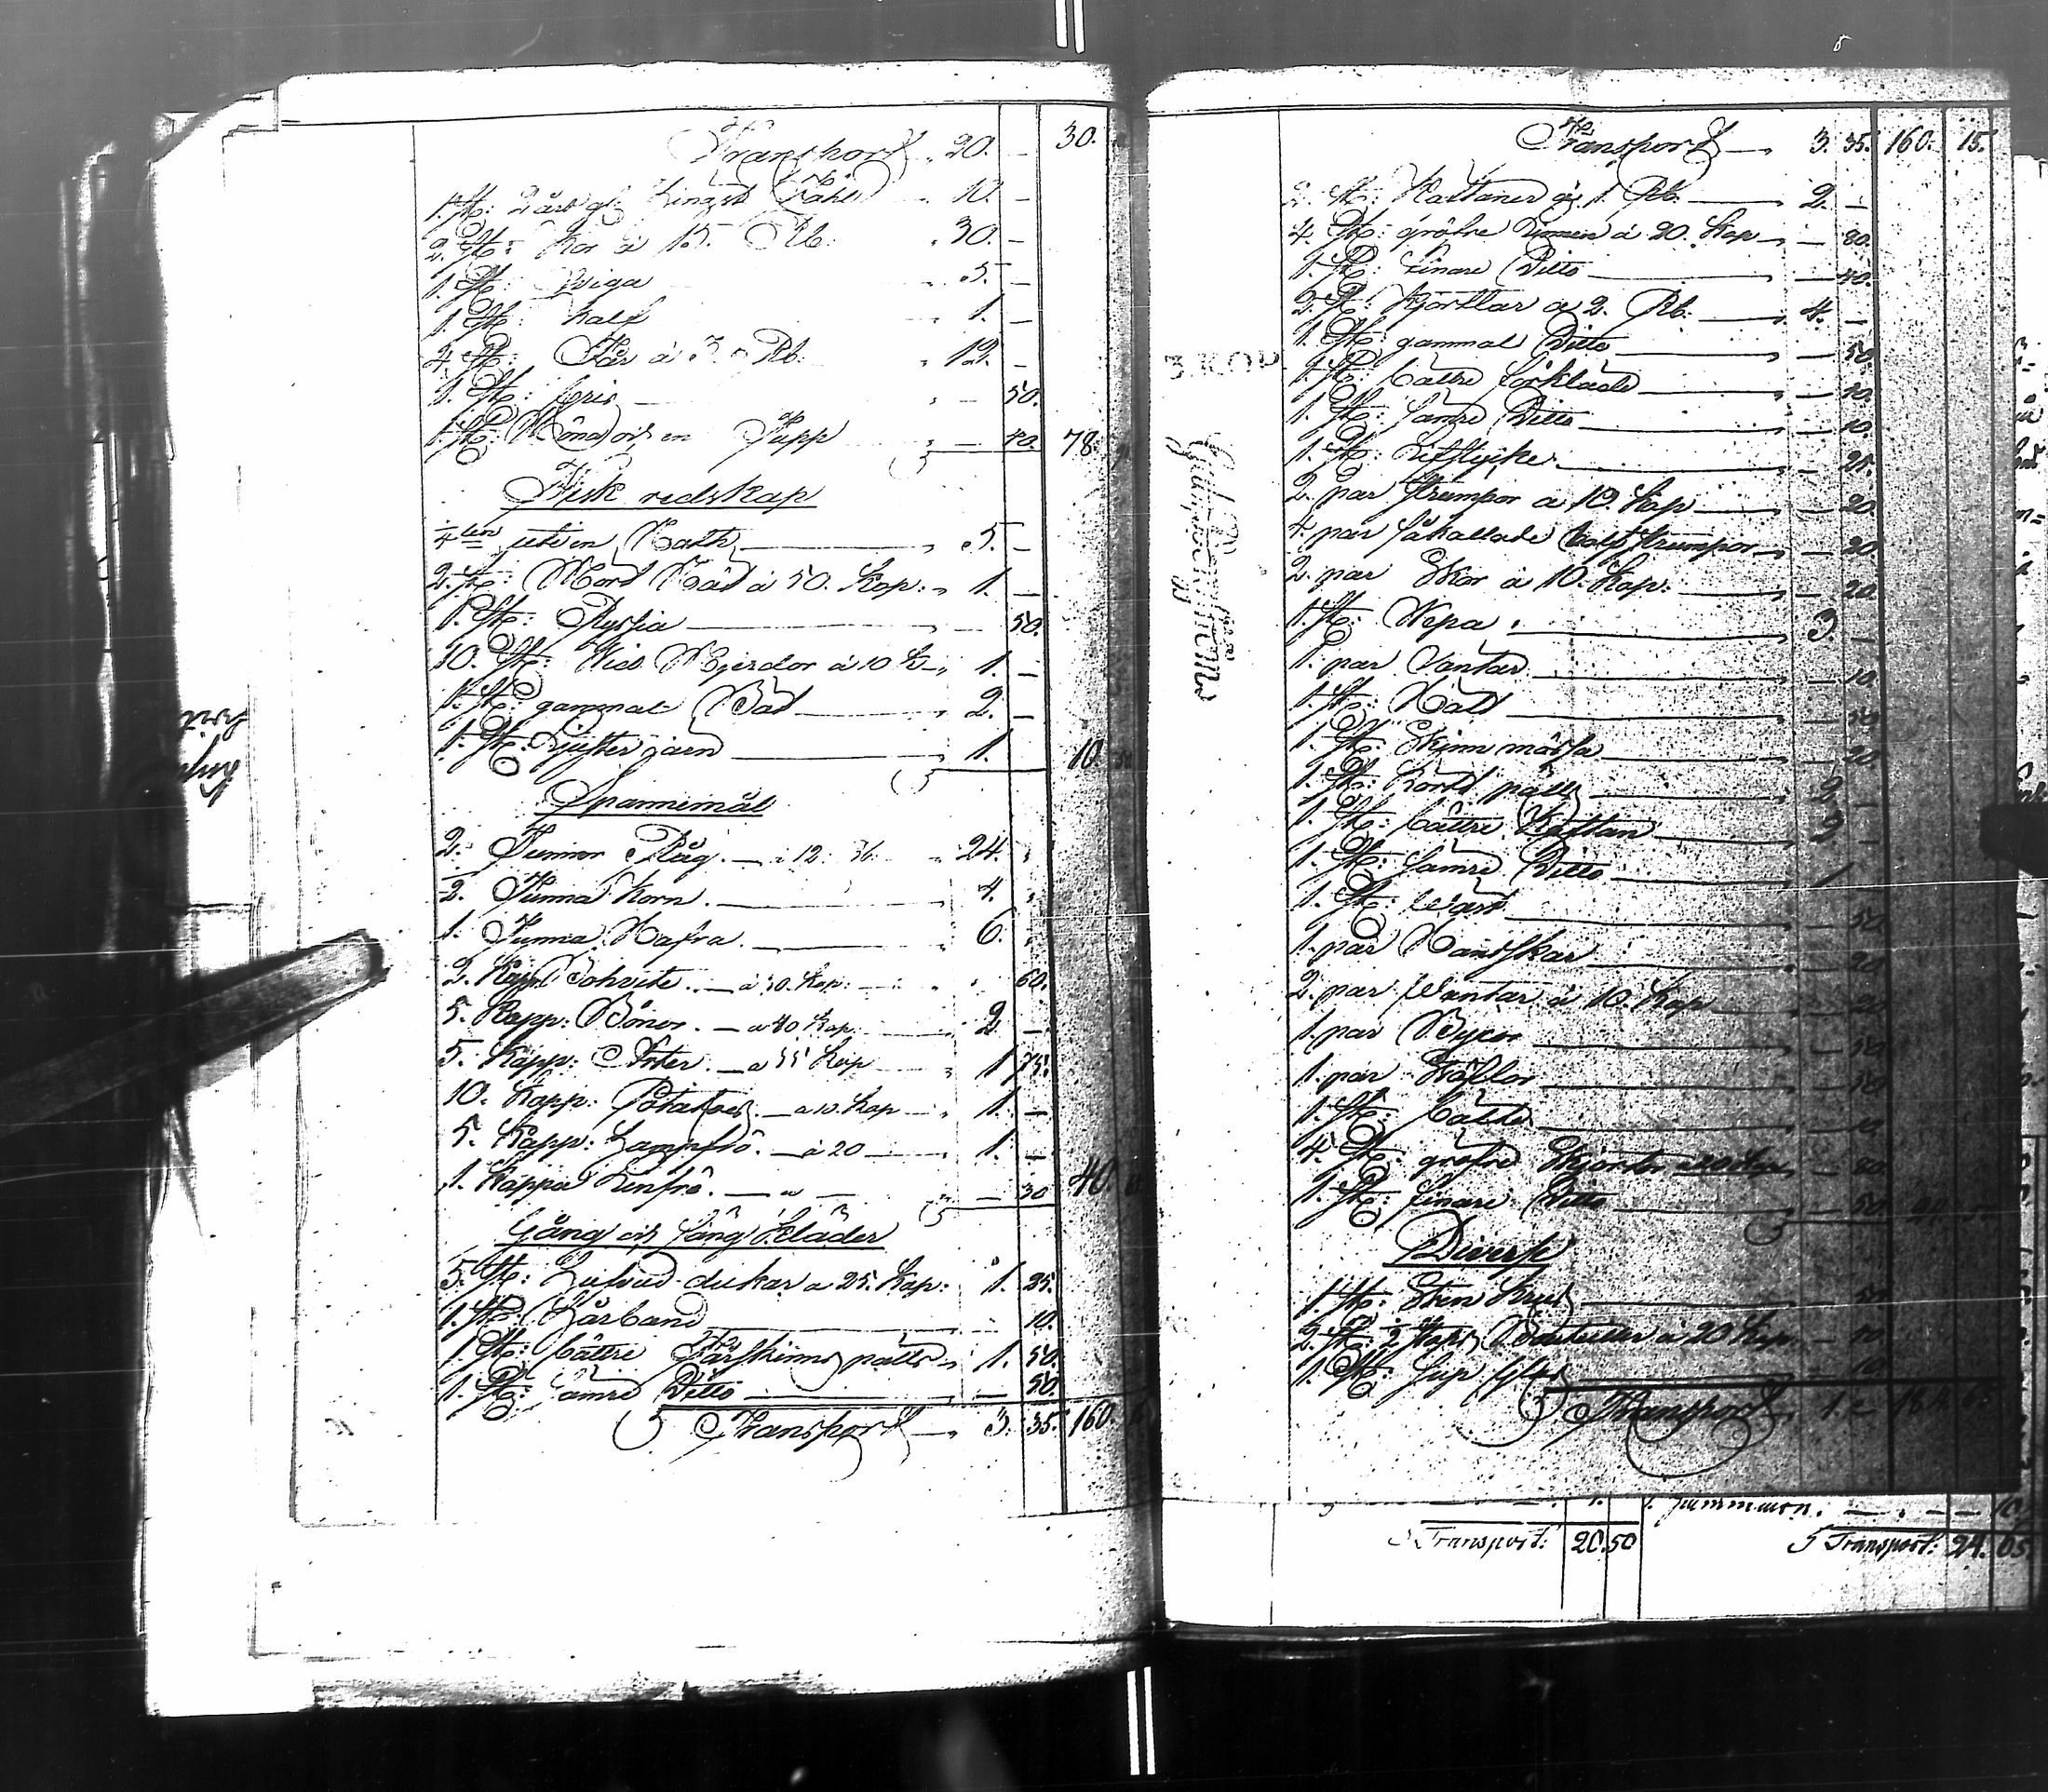 Transport 20. — 30.
1. St: 2 årigt Hingst Fåhl 10. —
2. St: Kor à 15. Rb: 30. —
1. St: Qviga 5. —
1. St: Kalf 1. —
4. St: Får à 3. Rb. 12. —
1. St: Gris — 50.
1. St: Höna och en Tupp — 40. 78.
Fisk redskap
4 uti en Noth 5. —
2. St: Mörd Nät à 50. Kop: 1. —
1. St: Ryssia — 50.
10. St: Mjerdor à 10 K 1. —
1. St: gammal Båt 2. —
1. St: Ljusterjärn 1. 10
Spannemål
2. Tunnor Råg. — à 12: 24.
2. Tunna Korn. 4.
1. Tunna Hafra. 6.
2. Kapp Bohvete. — à 30. Kop: 60.
5. Kapp: Bönor. — a 40 Kop: 2 —
5. Kapp: Ärter. — a 35 Kop 1 75.
10. Kapp: Potatoes. — a 10. Kop 1. —
5. Kapp: Hampfrö. — à 20 1. —
1. Kappa Linfrö. — a — — 30 40.
Gång och Säng Kläder
5. St: Hufvud dukar a 25. Kop: 1. 25.
1. St: Hårband 10.
1. St: bättre Fårskinns pälts 1. 50.
1. St: sämre Ditto — 50.
Transport 3. 35. 160.
Transport 3. 35. 160. 15.
2. St: Kaftaner à 1. Rb. 2. —
4. St: gröfre Linnen à 20. Kop — 80.
1. St: finare Ditto — 40.
2. St: Kjortlar a 2. Rb. 4. —
1. St: gammal Ditto — 50
1. St: bättre förkläde — 20.
1. St: sämre Ditto — 10.
1. St: Lifstycke — 25.
2. par Strumpor a 10. Kop — 20.
4. par såkallade half strumpor — 20.
2. par Skor à 10. Kop: — 20.
1. St: Wepa. 3 —
1. par Vantar — 10.
1. St: Hatt — 50.
1. St: Skinn mössa — 20.
1. St: Kort pälts 2 —
1. St: bättre Kaftan 3 —
1. St: sämre Ditto 1
1. St: Väst — 50.
1. par Handskar — 20
2. par Vantar à 10. Kop — 20
1. par Byxor — 50
1. par Stöflor — 50
1. St: bälte
4. St: gröfre Skjortor — 80
1. St: finare Ditto — 50.
Diverse
1. St: Sten Krus 50
2. St: 2 Kops Bouteiller à 20 Kop
1. St: Sup glas
Transport
3. KOP
Transport: 20.50
Transport: 24. 05.